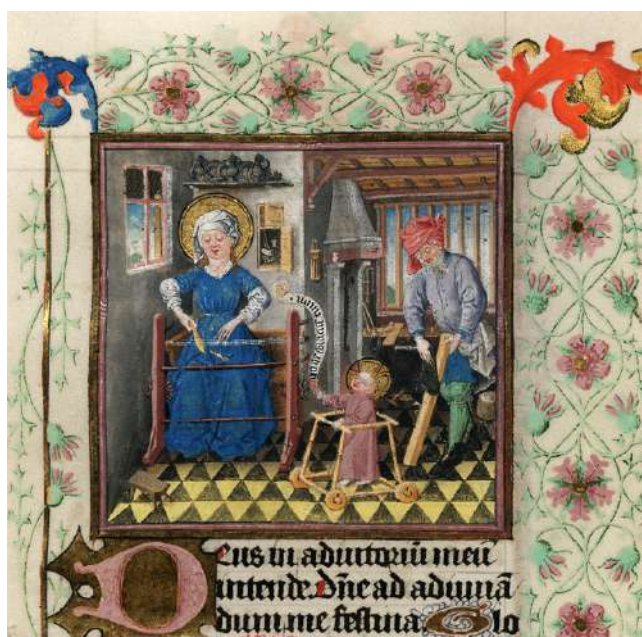 Deus in adiutoriū meū
intende. Dn̄e ad adiuuā
dum me festina. Glo